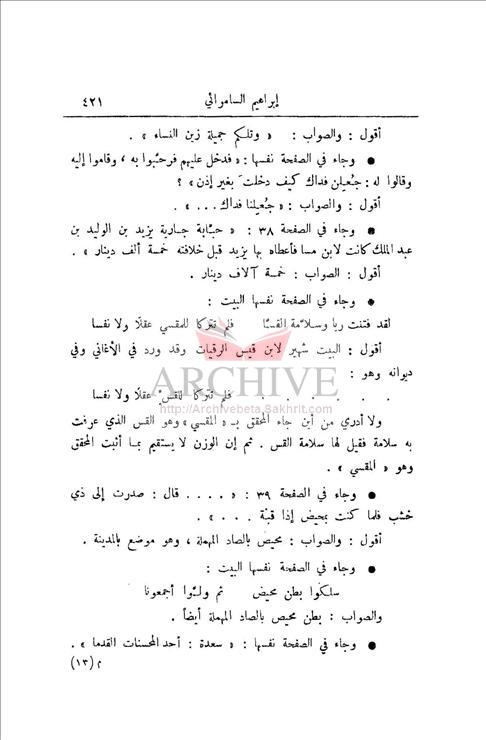 إبراهيم السامرائي
٤٢١
أقول : والصواب : « وتلكم جميلة زين النساء » .
● وجاء في الصفحة نفسها : « فدخل عليهم فرحّبوا به ، وقاموا إليه
وقالوا له : جُعِلن فداك كيف دخلتَ بغير إذن » ؟
أقول : والصواب : « جُعِلنا فداك . . . » .
● وجاء في الصفحة ٣٨ : « حبّابة جارية يزيد بن الوليد بن
عبد الملك كانت لابن مسا فأعطاه بها يزيد قبل خلافته خمسة ألف دينار » .
أقول : الصواب : خمسة آلاف دينار .
● وجاء في الصفحة نفسها البيت :
لقد فتنت ريا وسلاّمة القسّا فلم تتركا للمقسي عقلا ولا نفسا
أقول : البيت شهير لابن قيس الرقيات وقد ورد في الأغاني وفي
ديوانه وهو :
. . . . . فلم تتركا للقسّ عقلا ولا نفسا
ARCHIVE
http://Archivebeta.Sakhrit.com
ولا أدري من أين جاء المحقق بـ « المقسي » وهو القس الذي عرفت
به سلامة فقيل لها سلامة القس . ثم إن الوزن لا يستقيم بما أثبت المحقق
وهو « المقسي » .
● وجاء في الصفحة ٣٩ : « . . . . قال : صدرت إلى ذي
خشب فلما كنت بمحيض إذا قبّة . . . » .
أقول : والصواب : محيص بالصاد المهملة ، وهو موضع بالمدينة .
● وجاء في الصفحة نفسها البيت :
سلكوا بطن محيض ثم ولّوا أجمعونا
والصواب : بطن محيص بالصاد المهملة أيضاً .
● وجاء في الصفحة نفسها : « سعدة : أحد المحسنات القدما » .
م (١٣)